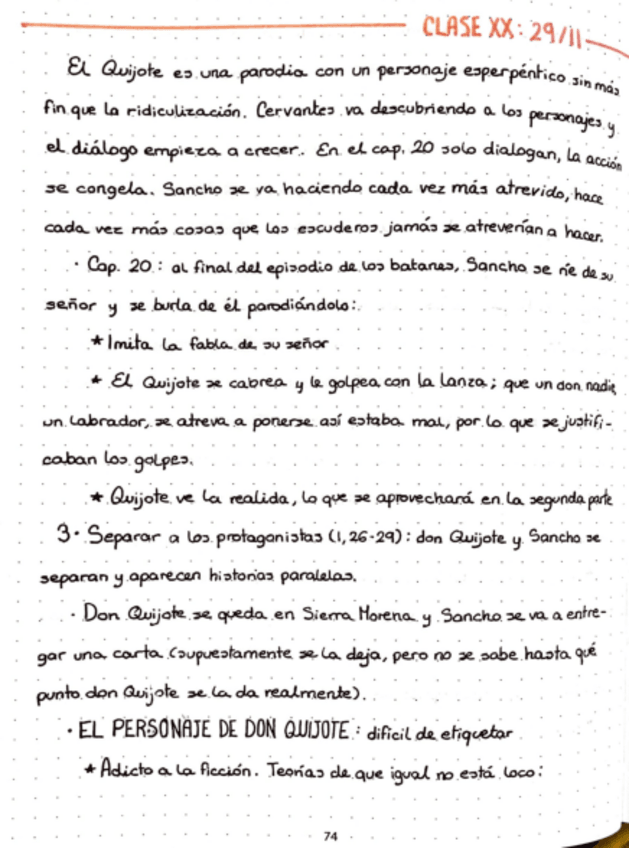 CLASE XX: 29/11
El Quijote es una parodia con un personaje esperpéntico sin más
fin que la ridiculización. Cervantes va descubriendo a los personajes y
el diálogo empieza a crecer. En el cap. 20 solo dialogan, la acción
se congela. Sancho se va haciendo cada vez más atrevido, hace
cada vez más cosas que los escuderos jamás se atreverían a hacer.
· Cap. 20: al final del episodio de los batanes, Sancho se ríe de su
señor y se burla de él parodiándolo:
* Imita la fabla de su señor
* El Quijote se cabrea y le golpea con la lanza; que un don nadie,
un labrador, se atreva a ponerse así estaba mal, por lo que se justifi-
caban los golpes.
* Quijote ve la realida, lo que se aprovechará en la segunda parte
3· Separar a los protagonistas (1, 26-29): don Quijote y Sancho se
separan y aparecen historias paralelas.
· Don Quijote se queda en Sierra Morena y Sancho se va a entre-
gar una carta (supuestamente se la deja, pero no se sabe hasta qué
punto don Quijote se la da realmente).
· EL PERSONAJE DE DON QUIJOTE: difícil de etiquetar
* Adicto a la ficción. Teorías de que igual no está loco:
74